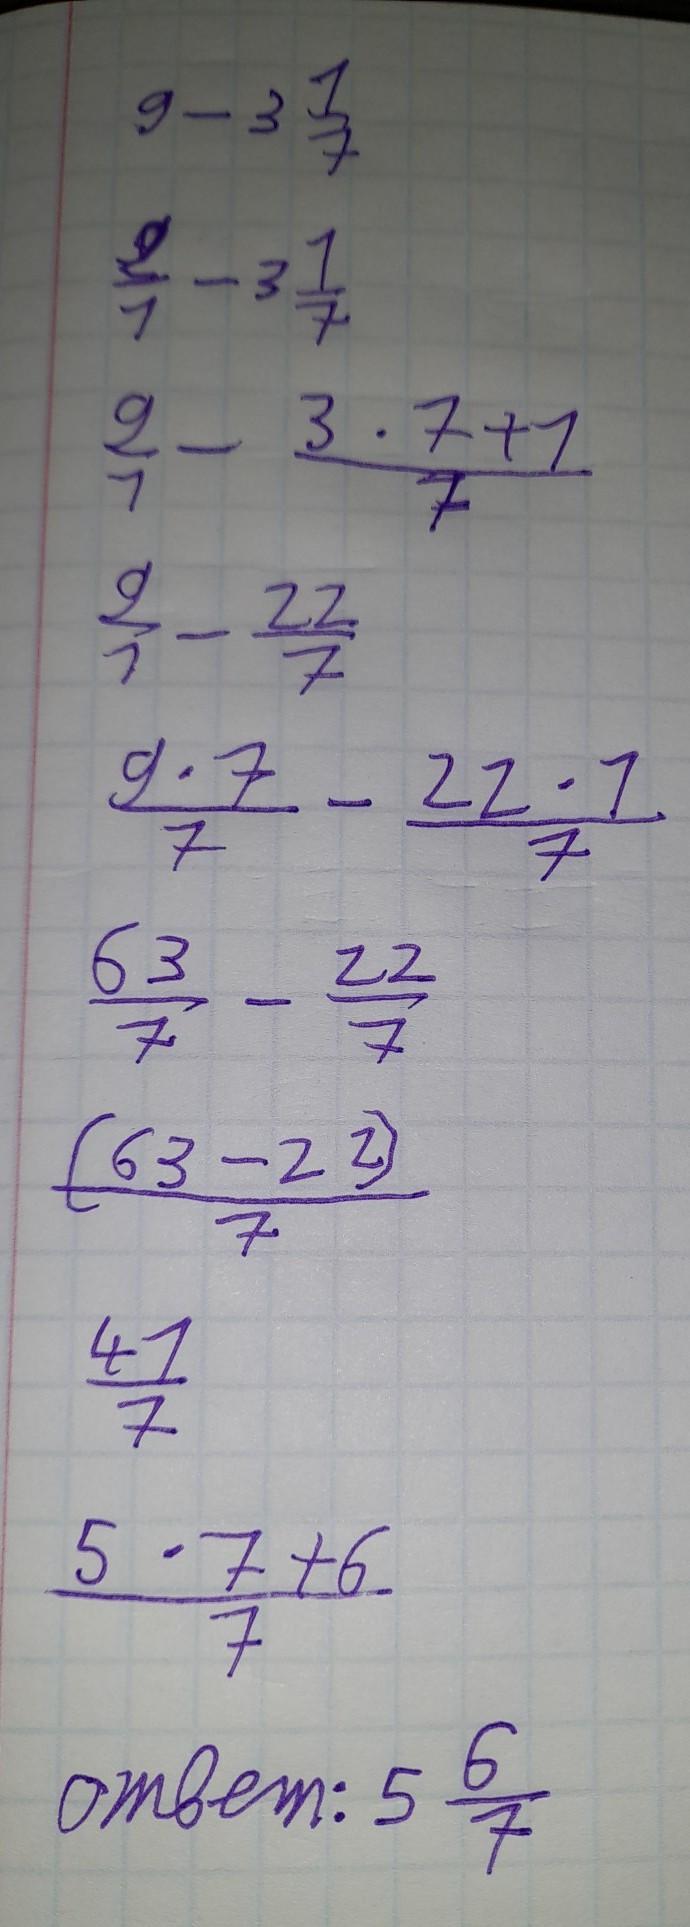 9 - 3 1/7
9/1 - 3 1/7
9/1 - (3 · 7 + 1)/7
9/1 - 22/7
(9 · 7)/7 - (22 · 1)/7
63/7 - 22/7
(63 - 22)/7
41/7
(5 · 7 + 6)/7
ответ: 5 6/7